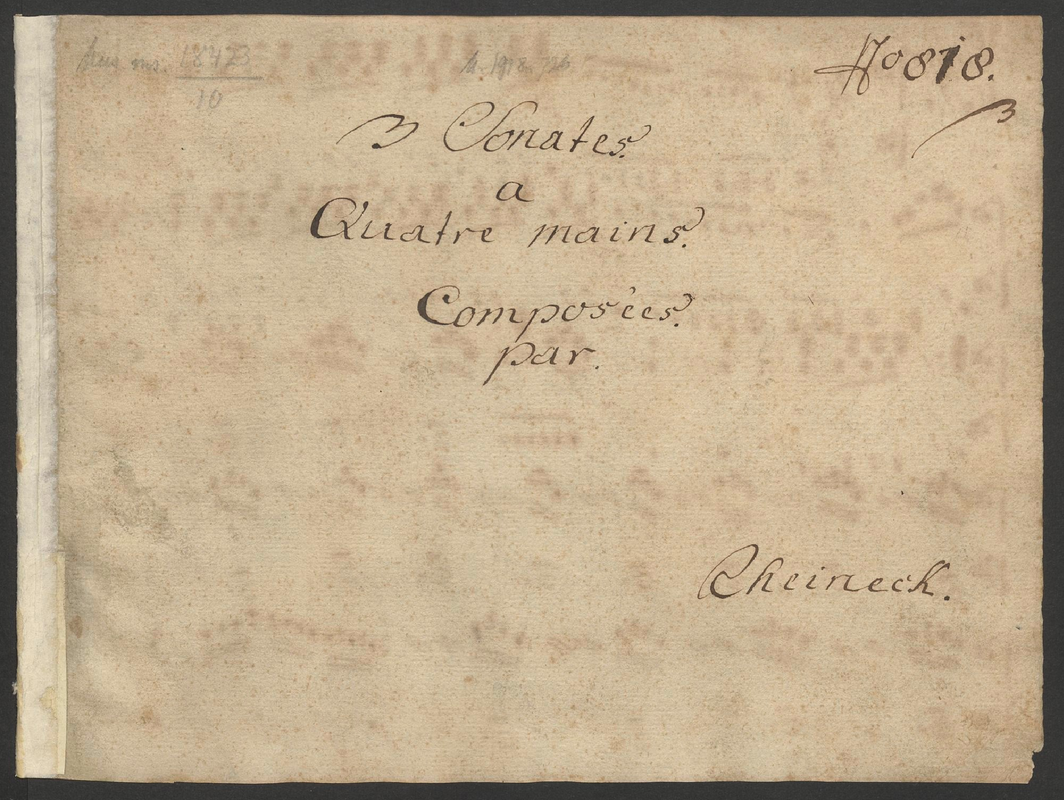 Mus. ms. 18473
10
No 818.
3
3 Sonates.
a
Quatre mains.
Composées.
par.
Rheineck.